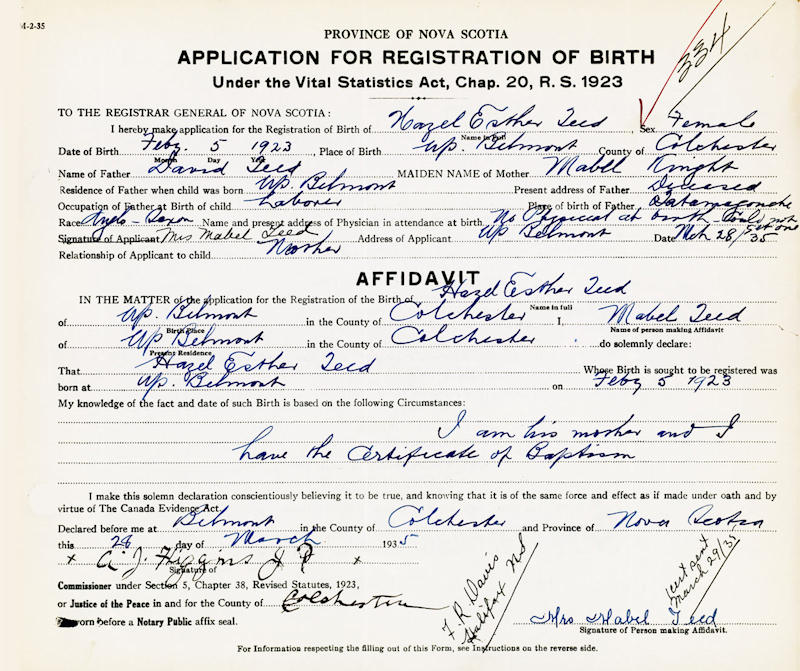 M-2-35
PROVINCE OF NOVA SCOTIA
334
APPLICATION FOR REGISTRATION OF BIRTH
Under the Vital Statistics Act, Chap. 20, R. S. 1923
TO THE REGISTRAR GENERAL OF NOVA SCOTIA:
I hereby make application for the Registration of Birth of Hazel Esther Teed Sex Female
Name in Full
Date of Birth Feby. 5 1923, Place of Birth Up. Belmont County of Colchester
Month Day Year
Name of Father David Teed MAIDEN NAME of Mother Mabel Knight
Residence of Father when child was born Up. Belmont Present address of Father Diceased
Occupation of Father at Birth of child Laborer Place of birth of Father Tatamagouche
Race Anglo-Saxon Name and present address of Physician in attendance at birth No Physical at birth not get one
Signature of Applicant Mrs Mabel Teed Address of Applicant Up Belmont Date Mch 28/35
Relationship of Applicant to child Mother
AFFIDAVIT
IN THE MATTER of the application for the Registration of the Birth of Hazel Esther Teed
Name in full
of Up. Belmont in the County of Colchester I, Mabel Teed
Birth Place Name of person making Affidavit
of Up Belmont in the County of Colchester do solemnly declare:
Present Residence
That Hazel Esther Teed Whose Birth is sought to be registered was
born at Up. Belmont on Feby 5 1923
My knowledge of the fact and date of such Birth is based on the following Circumstances:
I am his mother and I
have the Certificate of Baptism
I make this solemn declaration conscientiously believing it to be true, and knowing that it is of the same force and effect as if made under oath and by
virtue of The Canada Evidence Act.
Declared before me at Belmont in the County of Colchester and Province of Nova Scotia
this 28 day of March 1935
x A. J. Higgins J P x
Signature of
Commissioner under Section 5, Chapter 38, Revised Statutes, 1923,
or Justice of the Peace in and for the County of Colchester
before a Notary Public affix seal.
F. R. Davis
Halifax NS
cert sent
March 29/35
Mrs Mabel Teed
Signature of Person making Affidavit.
For Information respecting the filling out of this Form, see Instructions on the reverse side.